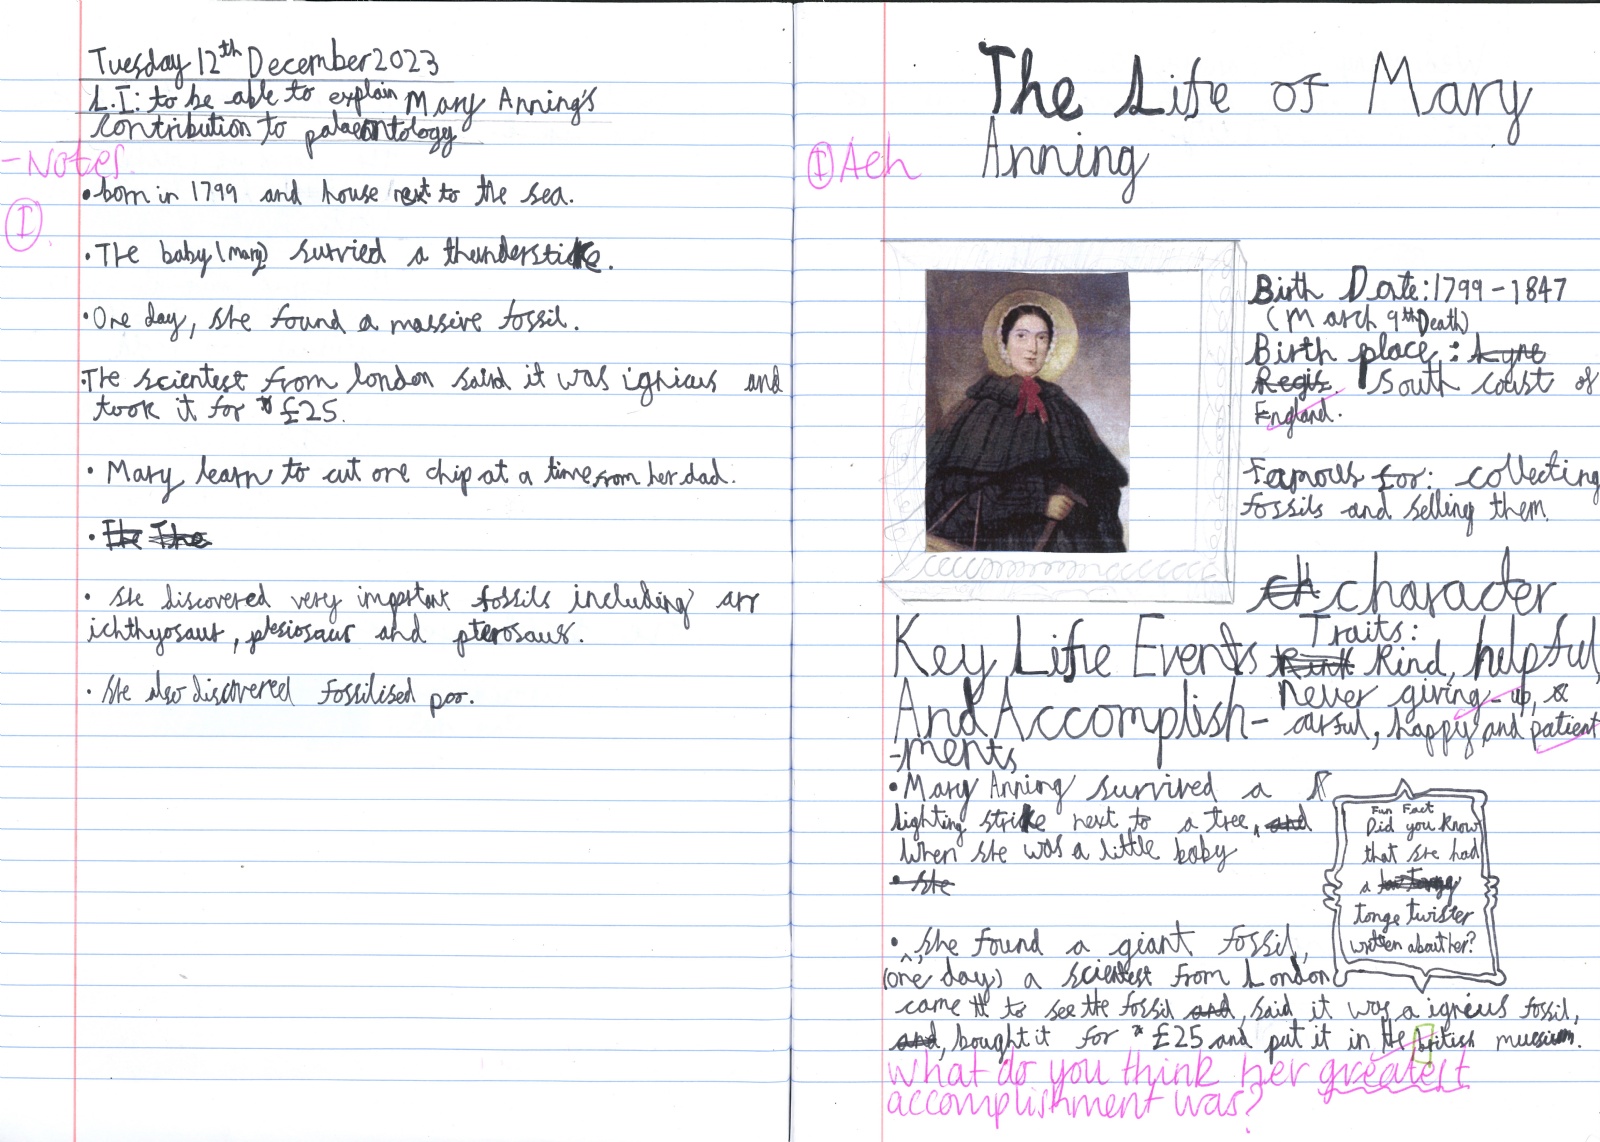 Tuesday 12th December 2023
L.I: to be able to explain Mary Anning's
contribution to palaeontology
-Notes.
• born in 1799 and house next to the sea.
I
• The baby (mary) survied a thunderstike.
• One day, she found a massive fossil.
• The scientest from london said it was ignious and
took it for £25.
• Mary learn to cut one chip at a time from her dad.
• She discovered very important fossils including an
ichthyosaur, plesiosaur and pterosaur.
• She also discovered fossilised poo.
The Life of Mary
Anning
I Ach
Birth Date: 1799 - 1847
(March 9th Death)
Birth place: Lyne
Regis. South coast of
England.
Famous for: collecting
fossils and selling them.
character
Traits:
Kind, helpful,
Never giving-up,
carful, happy and patient
Key Life Events
And Accomplish-
-ments
• Mary Anning survived a
lighting strike next to a tree,
when she was a little baby
• She
• she found a giant fossil,
(one day) a scientest from London
came to see the fossil and, said it was a ignéus fossil,
and, bought it for £25 and put it in the british
Fun Fact
Did you know
that she had
a
tonge twister
written about her?
What do you think her greatest
accomplishment was?